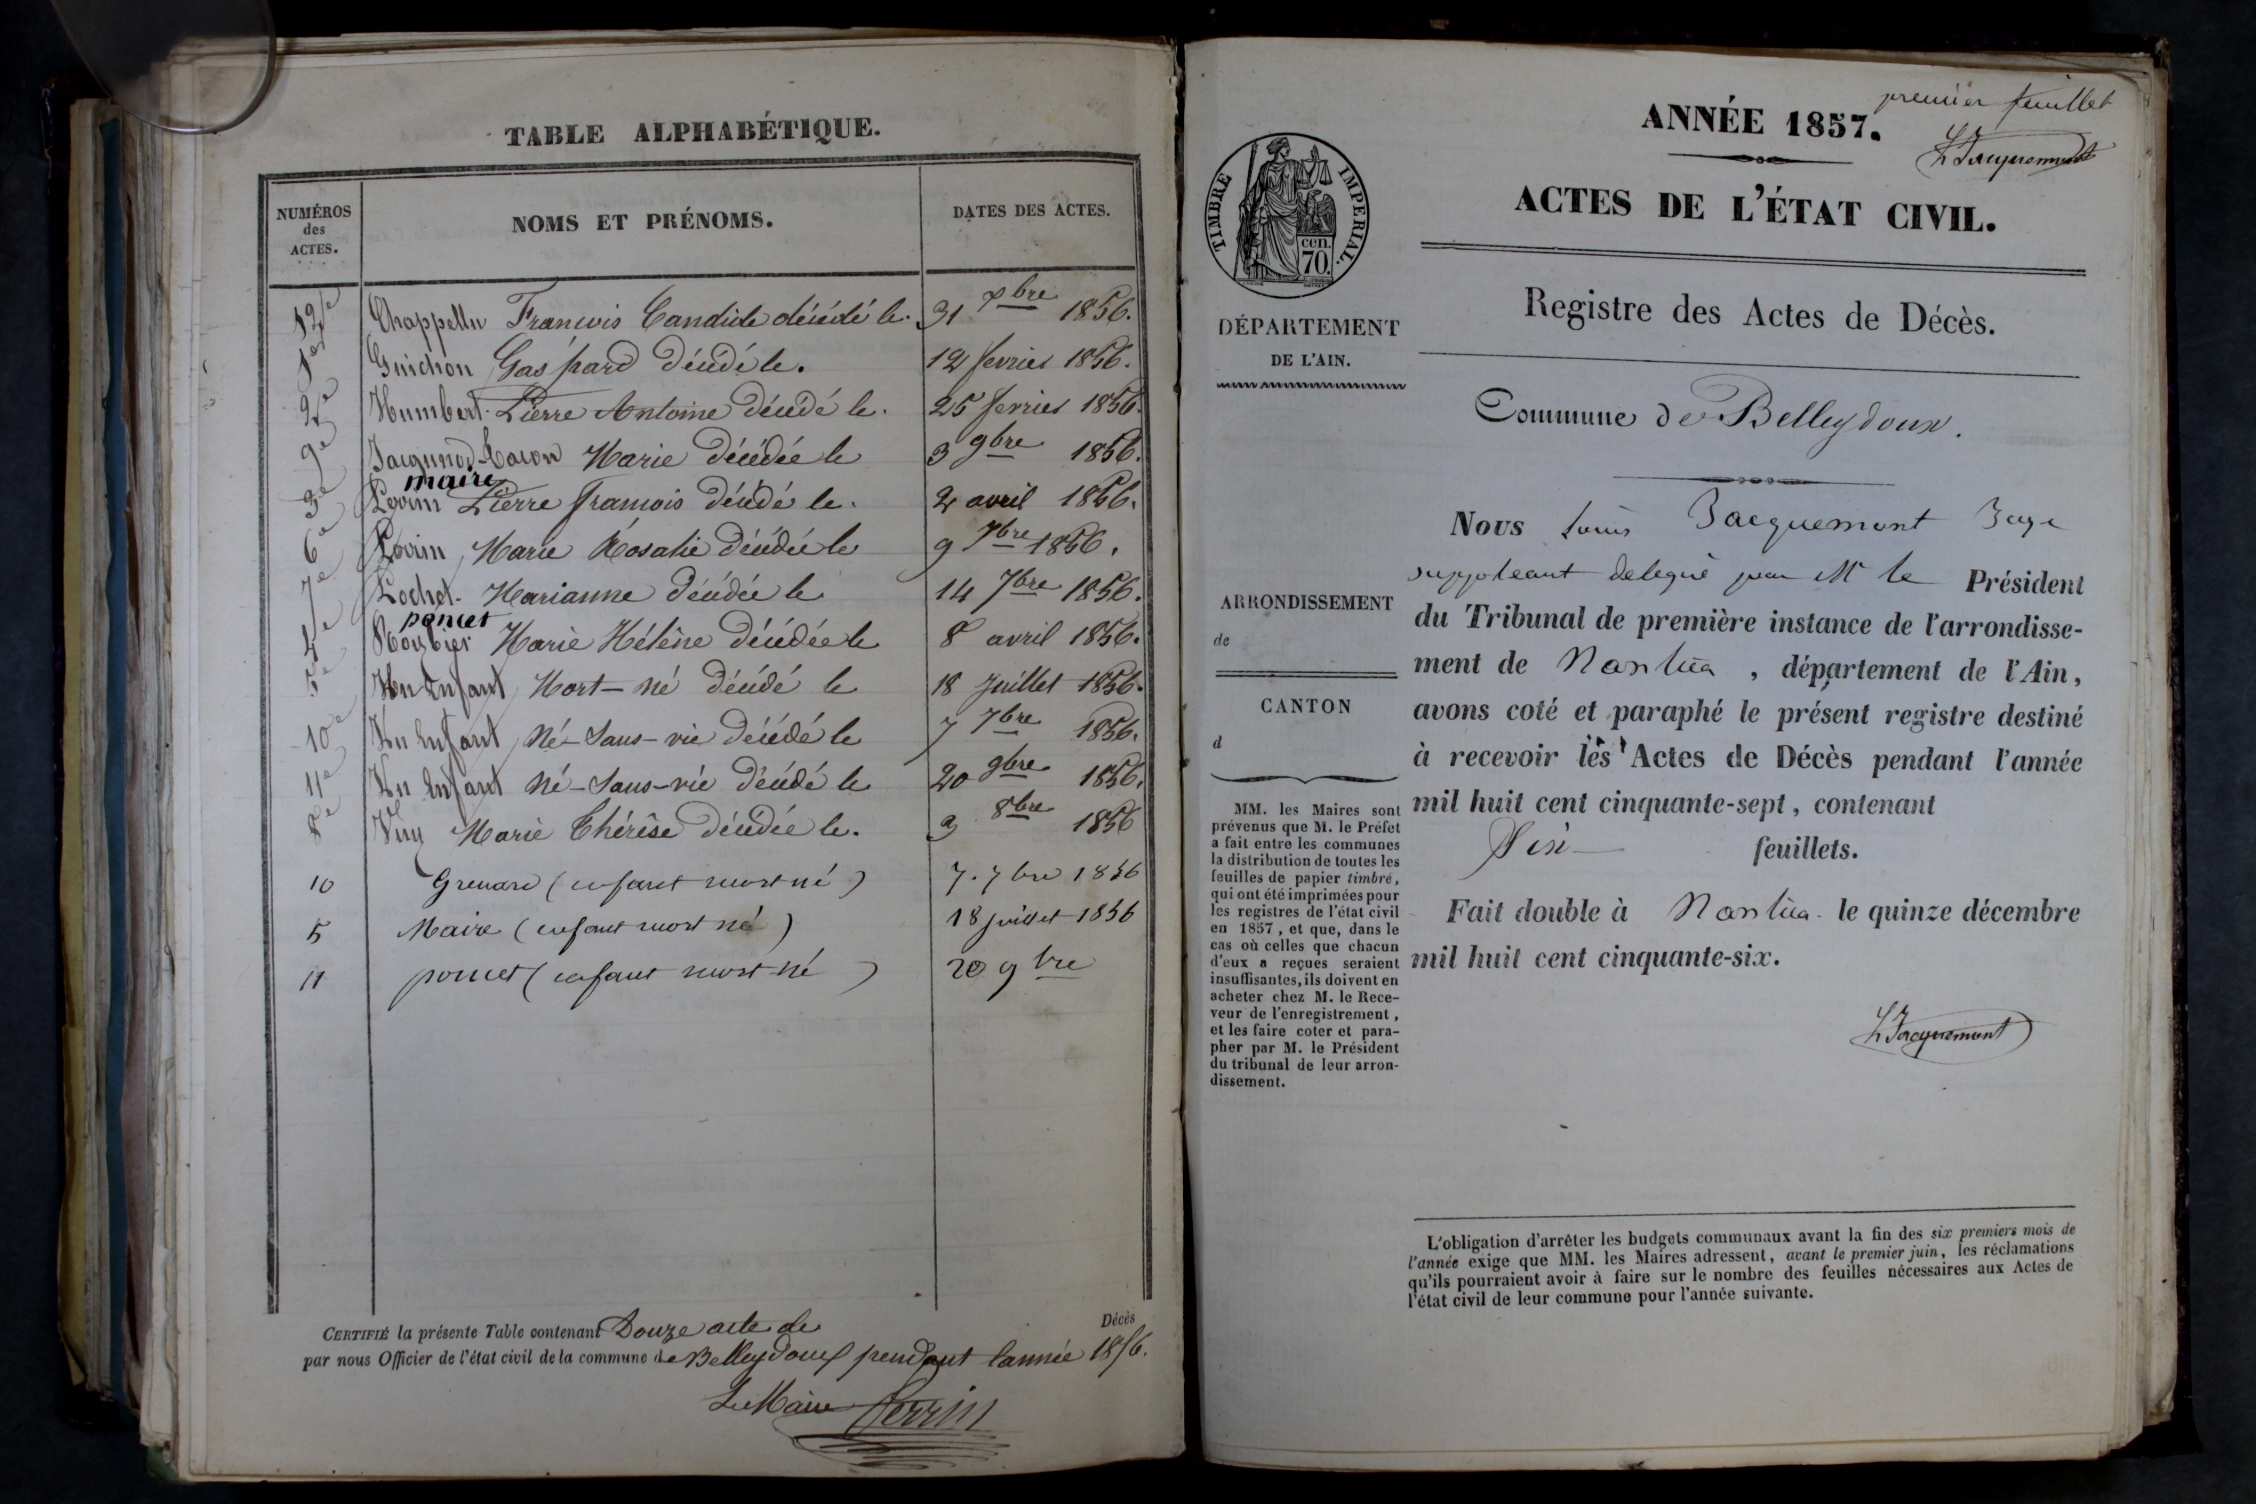 TABLE ALPHABÉTIQUE.
NUMÉROS des ACTES.
NOMS ET PRÉNOMS.
DATES DES ACTES.
12e Chappellu François Candide décédé le. 31 xbre 1856.
1er Guichon Gaspard décédé le. 12 fevrier 1856.
2e Humbert Pierre Antoine décédé le. 25 fevrier 1856.
9e Marie décédée le 3 9bre 1856.
maire
3e Perrin Pierre François décédé le. 2 avril 1856.
6e Perrin Marie Rosalie décédée le 9 7bre 1856.
7e Pochet Marianne décédée le 14 7bre 1856.
poncet
4e Marie Hélène décédée le 8 avril 1856.
5e Un Enfant Mort-né décédé le 18 Juillet 1856.
10e Un Enfant Né-Sans-vie décédé le 7 7bre 1856.
11e Un Enfant Né-Sans-vie décédé le 20 9bre 1856.
8e Vuy Marie Thérèse décédée le. 3 8bre 1856
10 Grenard (enfant mort né) 7. 7bre 1856
5 Maire (enfant mort né) 18 juillet 1856
11 poncet (enfant mort né) 20 9bre
CERTIFIÉ la présente Table contenant Douze acte de Décès
par nous Officier de l'état civil de la commune de Belleydoux pendant lannée 1856.
Le Maire Perrin
premier feuillet
ANNÉE 1857.
L Jacquemont
ACTES DE L'ÉTAT CIVIL.
TIMBRE IMPERIAL.
cen.
70.
Registre des Actes de Décès.
DÉPARTEMENT
DE L'AIN.
Commune de Belleydoux.
Nous Louis Jacquemont Juge
suppléant delegué par Mr le Président
du Tribunal de première instance de l'arrondisse-
ment de Nantua, département de l'Ain,
avons coté et paraphé le présent registre destiné
à recevoir les Actes de Décès pendant l'année
mil huit cent cinquante-sept, contenant
Six feuillets.
Fait double à Nantua le quinze décembre
mil huit cent cinquante-six.
L Jacquemont
ARRONDISSEMENT
de
CANTON
d
MM. les Maires sont
prévenus que M. le Préfet
a fait entre les communes
la distribution de toutes les
feuilles de papier timbré,
qui ont été imprimées pour
les registres de l'état civil
en 1857, et que, dans le
cas où celles que chacun
d'eux a reçues seraient
insuffisantes, ils doivent en
acheter chez M. le Rece-
veur de l'enregistrement,
et les faire coter et para-
pher par M. le Président
du tribunal de leur arron-
dissement.
L'obligation d'arrêter les budgets communaux avant la fin des six premiers mois de
l'année exige que MM. les Maires adressent, avant le premier juin, les réclamations
qu'ils pourraient avoir à faire sur le nombre des feuilles nécessaires aux Actes de
l'état civil de leur commune pour l'année suivante.